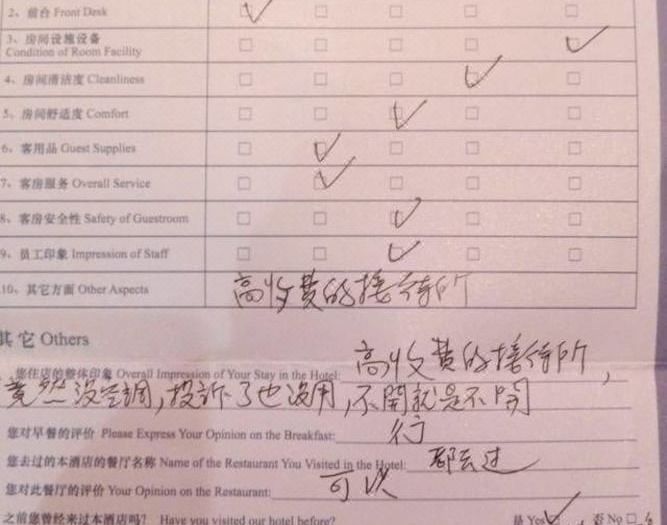 2、前台 Front Desk
3、房间设施设备
Condition of Room Facility
4、房间清洁度 Cleanliness
5、房间舒适度 Comfort
6、客用品 Guest Supplies
7、客房服务 Overall Service
8、客房安全性 Safety of Guestroom
9、员工印象 Impression of Staff
10、其它方面 Other Aspects 高收费的接待所
其它 Others
您住店的整体印象 Overall Impression of Your Stay in the Hotel: 高收费的接待所,
竟然没空调,投诉了也没用,不開就是不開
您对早餐的评价 Please Express Your Opinion on the Breakfast: 行
您去过的本酒店的餐厅名称 Name of the Restaurant You Visited in the Hotel: 都去过
您对此餐厅的评价 Your Opinion on the Restaurant: 可以
之前您曾经来过本酒店吗? Have you visited our hotel before? 是 Yes 否 No